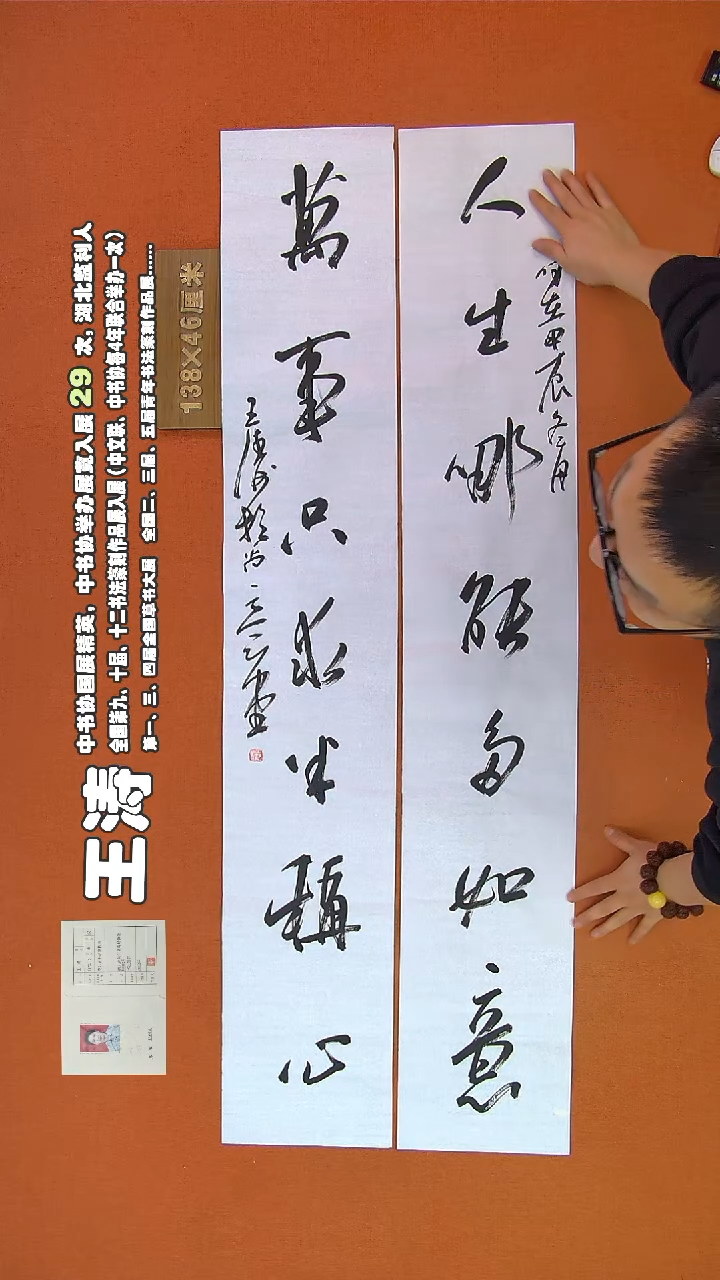 人生哪能多如意
时在甲辰冬月
萬事只求半稱心
王涛
138×46厘米
王涛
中书协国展精英,中书协举办展赛入展 29 次,湖北监利人
全国第九、十届、十二书法篆刻作品展入展(中文联、中书协每4年联合举办一次)
第一、三、四届全国草书大展 全国二、三届、五届青年书法篆刻作品展......